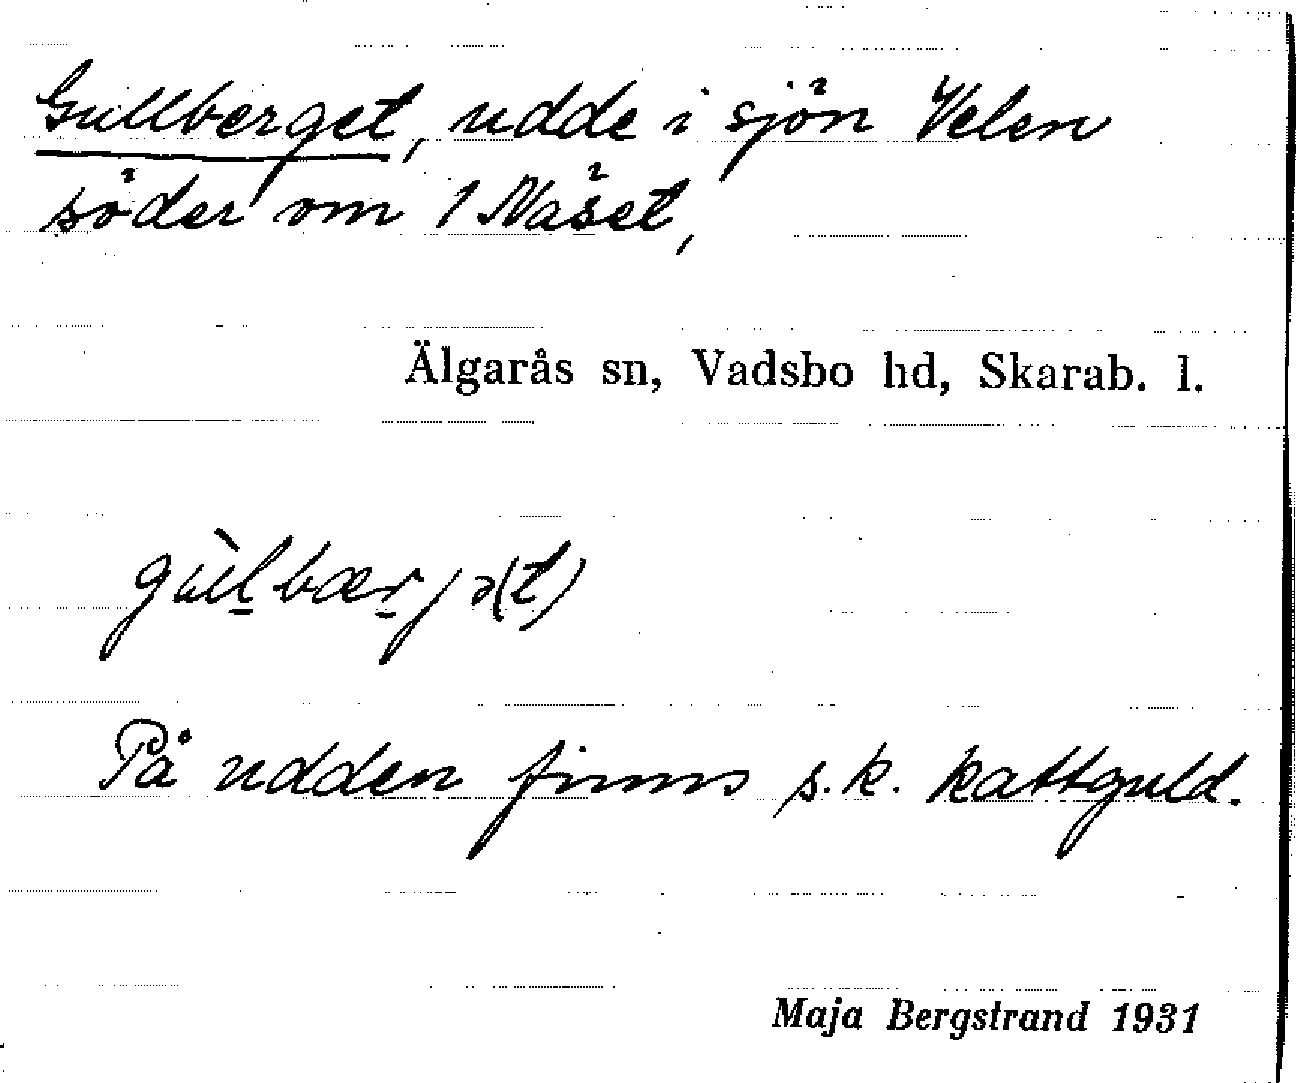 Gullberget, udde i sjön Velen
söder om 1 Näset,
Älgarås sn, Vadsbo hd, Skarab. l.
gùl̠bær̠jə(t)
På udden finns s.k. kattguld.
Maja Bergstrand 1931